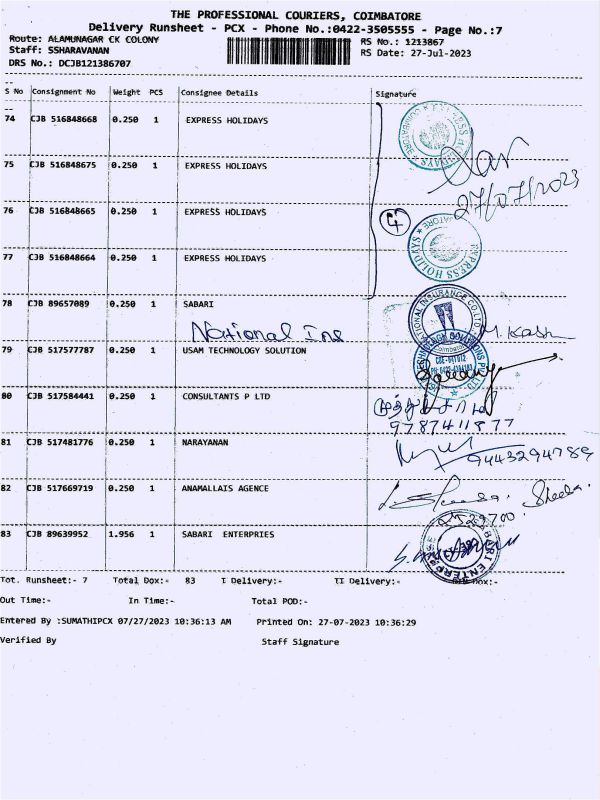 THE PROFESSIONAL COURIERS, COIMBATORE
Delivery Runsheet - PCX - Phone No.:0422-3505555 - Page No.:7
Route: ALAMUNAGAR CK COLONY RS No.: 1213867
Staff: SSHARAVANAN RS Date: 27-Jul-2023
DRS No.: DCJB121386707
S No Consignment No Weight PCS Consignee Details Signature
74 CJB 516848668 0.250 1 EXPRESS HOLIDAYS
75 CJB 516848675 0.250 1 EXPRESS HOLIDAYS
27/07/2023
76 CJB 516848665 0.250 1 EXPRESS HOLIDAYS
4
77 CJB 516848664 0.250 1 EXPRESS HOLIDAYS
EXPRESS HOLIDAYS
78 CJB 89657089 0.250 1 SABARI
National Ins
79 CJB 517577787 0.250 1 USAM TECHNOLOGY SOLUTION
80 CJB 517584441 0.250 1 CONSULTANTS P LTD
9787411877
81 CJB 517481776 0.250 1 NARAYANAN
9443294789
82 CJB 517669719 0.250 1 ANAMALLAIS AGENCE
Sheeba.
83 CJB 89639952 1.956 1 SABARI ENTERPRIES
SABARI ENTERPRISE
Tot. Runsheet:- 7 Total Dox:- 83 I Delivery:- II Delivery:-
Out Time:- In Time:- Total POD:-
Entered By :SUMATHIPCX 07/27/2023 10:36:13 AM Printed On: 27-07-2023 10:36:29
Verified By Staff Signature